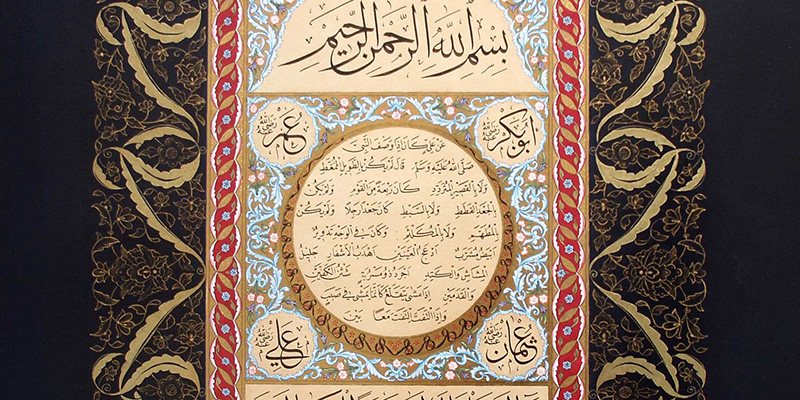 بسم الله الرحمن الرحيم
ابوبكر رضي الله عنه
عمر رضي الله عنه
عن علي كان اذا وصف النبي
صلى الله عليه وسلم قال لم يكن بالطويل الممغط
ولا بالقصير المتردد كان ربعة من القوم ولم يكن
بالجعد القطط ولا بالسبط كان جعدا رجلا ولم يكن
بالمطهم ولا بالمكلثم وكان في الوجه تدوير
ابيض مشرب ادعج العينين اهدب الاشفار جليل
المشاش والكتد اجرد ذو مسربة شثن الكفين
والقدمين اذا مشى يتقلع كانما يمشي في صبب
واذا التفت التفت معا بين
عثمان رضي الله عنه
علي رضي الله عنه